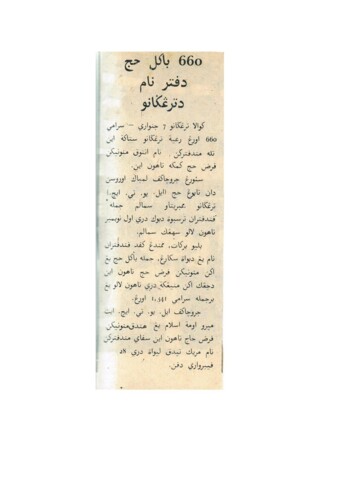 66o باكل حج
دفتر نام
دترڠݢانو
كوالا ترڠݢانو 7 جنواري – سرامي
66o اورڠ رعية ترڠݢانو ستاكة اين
تله مندفتركن نام انتوق منونيكن
فرض حج كمكه تاهون اين.
سئورڠ جوروچاكف لمباݢ اوروسن
دان تابوڠ حج (ايل. يو. تي. ايچ.)
ترڠݢانو ممبريتاو سمالم جمله
ڤندفتران ترسبوة دبوك دري اول نوبمبر
تاهون لالو سهڠݢ سمالم.
بليو بركات، ممندڠ كڤد ڤندفتران
نام يڠ دبواة سكارڠ، جمله باكل حج يڠ
اكن منونيكن فرض حج تاهون اين
دجڠك اكن منيڠكة دري تاهون لالو يڠ
برجمله سرامي 1,341 اورڠ.
جوروچاكف ايل. يو. تي. ايچ. ايت
ميرو اومة اسلام يڠ هندق منونيكن
فرض حاج تاهون اين سڤاي مندفتركن
نام مريك تيدق ليواة دري 28
فيبرواري دڤن.